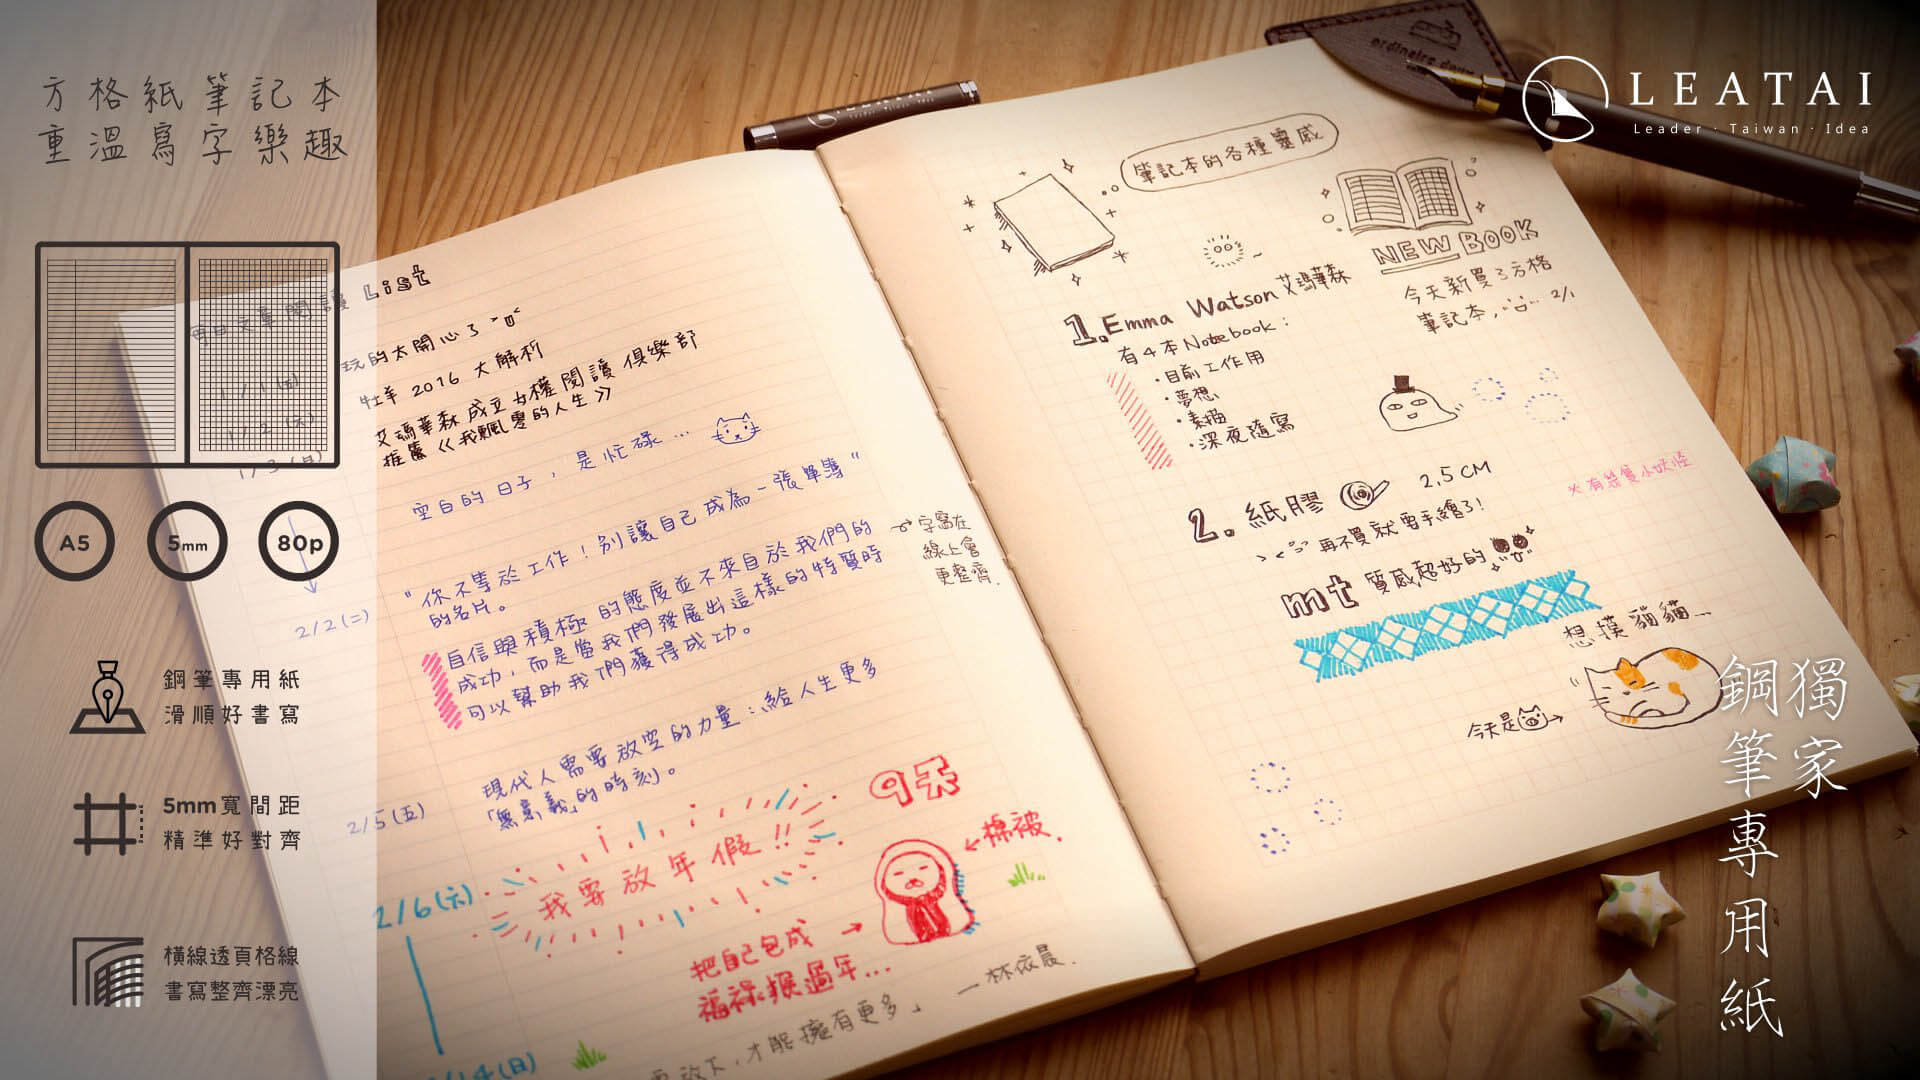 方格紙筆記本
重溫寫字樂趣
A5
5mm
80p
鋼筆專用紙
滑順好書寫
5mm寬間距
精準好對齊
橫線透頁格線
書寫整齊漂亮
LEATAI
Leader · Taiwan · Idea
獨家
鋼筆專用紙
每日文章閱讀 List
1/1(五)
玩的太開心了
1/2(六)
牡羊 2016 大解析
1/3(日)
艾瑪華森成立女權閱讀俱樂部
推薦《我飄零的人生》
空白的日子，是忙碌...
"你不等於工作！別讓自己成為一張單薄"
的名片。
2/2(二)
自信與積極的態度並不來自於我們的
成功，而是當我們發展出這樣的特質時
可以幫助我們獲得成功。
字寫在
線上會
更整齊.
2/5(五)
現代人需要放空的力量：給人生更多
「無意義」的時刻。
9天
2/6(六)
我要放年假!!
棉被.
把自己包成
福祿猴過年...
放下，才能擁有更多」 — 林依晨.
2/14(日)
筆記本的各種靈感
NEW BOOK
今天新買了方格
筆記本, 2/1
1. Emma Watson 艾瑪華森
有4本Notebook：
·目前工作用
·夢想
·素描
·深夜隨寫
※有幾隻小妖怪
2. 紙膠 2.5CM
再不買就要手繪了!
mt 質感超好的
想摸貓貓...
今天是